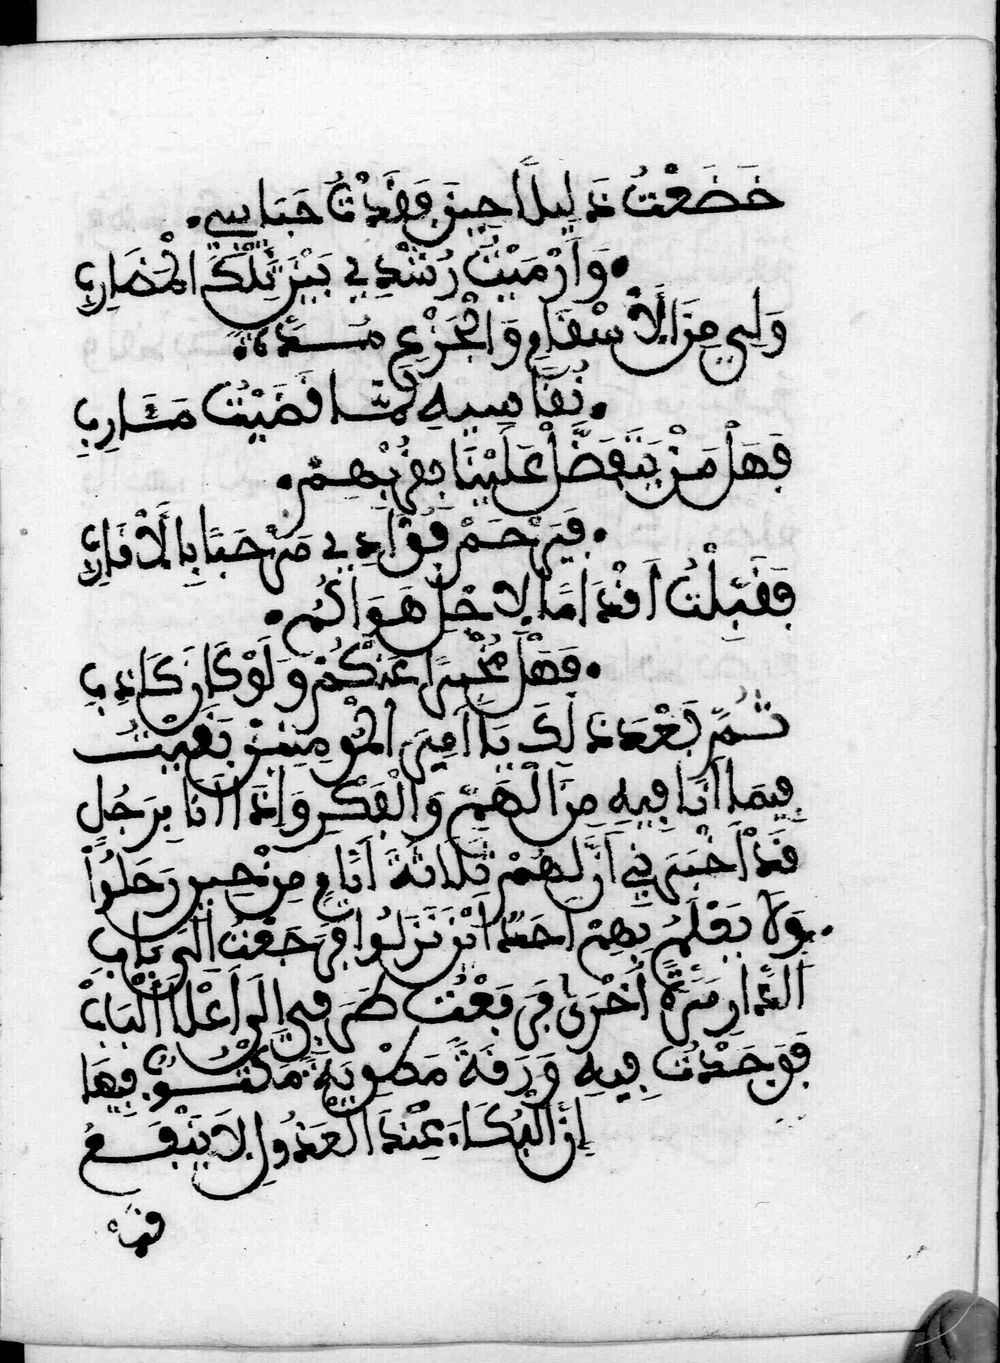 خَضَعْتُ ذَلِيلًا حِينَ فَقَدْتُ حَبَايِبِي.
.وَأَرْمَيْتُ رُشْدِي بَيْنَ تِلْكَ الْمَضَارِبِ
وَلِي مِنَ الْأَسْقَامِ وَالْحُزْنِ مُدَّة.
.نُقَاسِيهِ لَمَّا قَضَيْتُ مَـَٔارِبِ
فَهَلْ مَنْ يَتَفَضَّلْ عَلَيْنَا بِقُرْبِهِمْ.
.فَيَرْحَمْ فُؤَادِي مَرْحَبًا بِالْأَقَارِبِ
فَقَبَّلْتُ أَقْدَامًا لِأَجْلِ هَوَاكُمْ.
.فَهَلْ مُخْبِرًا عَنْكُمْ وَلَوْ كَانَ كَاذِبِ
ثُمَّ بَعْدَ ذَلِكَ يَا أَمِيرَ الْمُؤْمِنِينَ بَقِيتُ
فِيمَا أَنَا فِيهِ مِنَ الْهَمِّ وَالْفِكْرِ وَإِذَا أَنَا بِرَجُلٍ
قَدْ أَخْبَرَنِي أَنَّ لَهُمْ ثَلَاثَةَ أَيَّامٍ مِنْ حِينِ رَحَلُوا
.وَلَا يَعْلَمُ بِهِمْ أَحَدٌ أَيْنَ نَزَلُوا فَرَجَعْتُ إِلَى بَابِ
الدَّارِ مَرَّةً أُخْرَى فَرَفَعْتُ طَرْفِي إِلَى أَعْلَا الْبَابْ
فَوَجَدْتُ فِيهِ وَرَقَةً مَطْوِيَةً مَكْتُوبٌ فِيهَا
إِنَّ الْبُكَاءَ عِنْدَ الْعَذُولِ لَا يَنْفَعُ